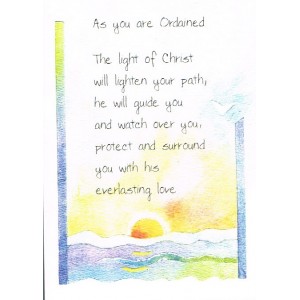 As you are Ordained
The light of Christ
will lighten your path,
he will guide you
and watch over you,
protect and surround
you with his
everlasting love